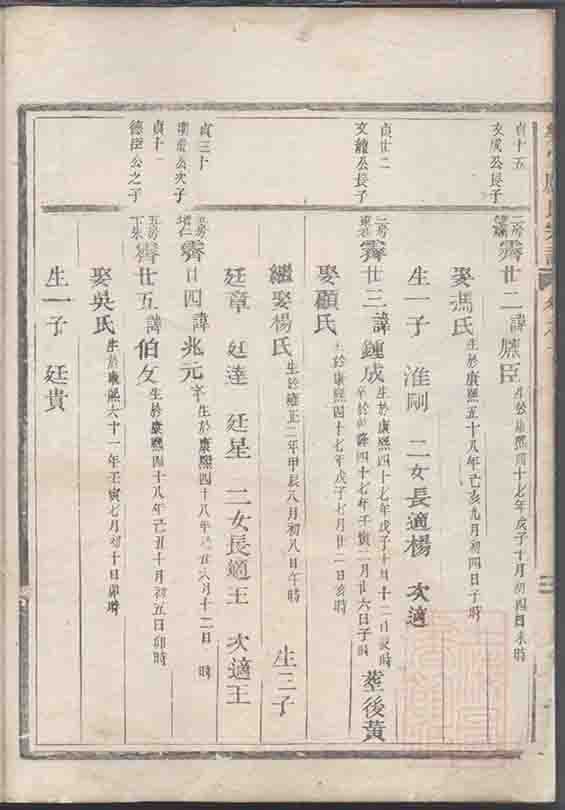 貞十五
文成公長子
霽廿二諱 臣 生於康熙四十七年戊子十月初四日未時
娶馮氏 生於康熙五十八年己亥九月初四日子時
生一子 淮剛 二女長適楊 次適
貞廿二
公長子
霽廿三諱鍾成 生於康熙四十七年戊子十月十二日 時
卒於乾隆四十七年壬寅二月廿六日子時 葬後黃
娶顧氏 生於康熙四十七年戊子七月廿二日亥時
繼娶楊氏 生於雍正二年甲辰八月初八日午時 生三子
廷章 廷達 廷星 二女長適王 次適王
貞三十
公次子
霽廿四諱兆元 生於康熙四十八年己丑六月十二日 時
貞十一
德臣公之子
五房
霽廿五諱伯文 生於康熙四十八年己丑十月初五日卯時
娶吳氏 生於康熙六十一年壬寅七月初十日卯時
生一子 廷貴